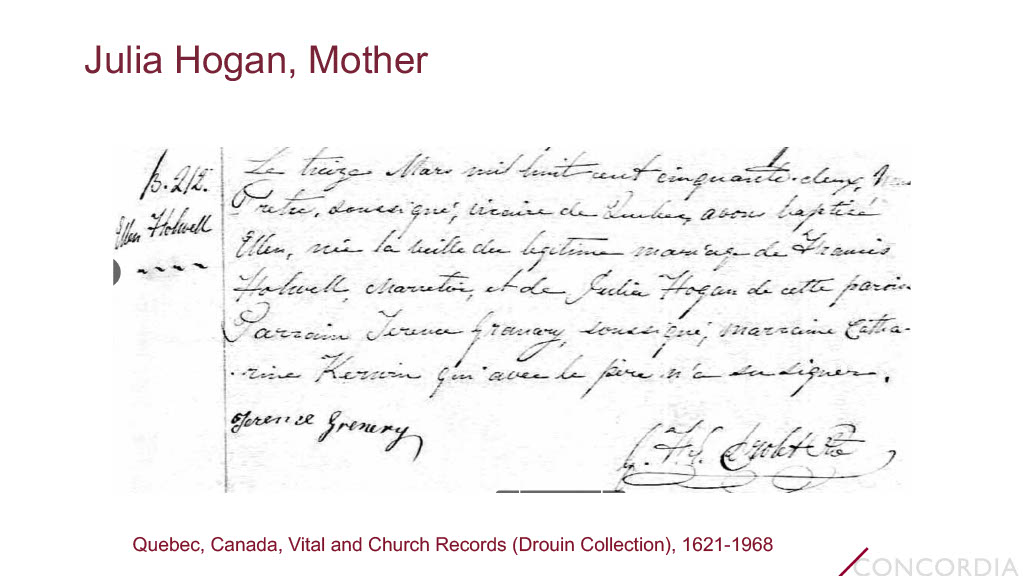 Julia Hogan, Mother
B. 212.
Ellen Holwell
Le treize Mars mil huit cent cinquante-deux, Nous
Prêtre, soussigné, vicaire de Québec, avons baptisé
Ellen, née la veille du légitime mariage de Francis
Holwell, charretier, et de Julia Hogan de cette parois
Parrain Terence Granary, soussigné, marraine Catha-
rine Kerwin qui avec le père n'a su signer.
Terence Grenery
Ptre
Quebec, Canada, Vital and Church Records (Drouin Collection), 1621-1968
CONCORDIA